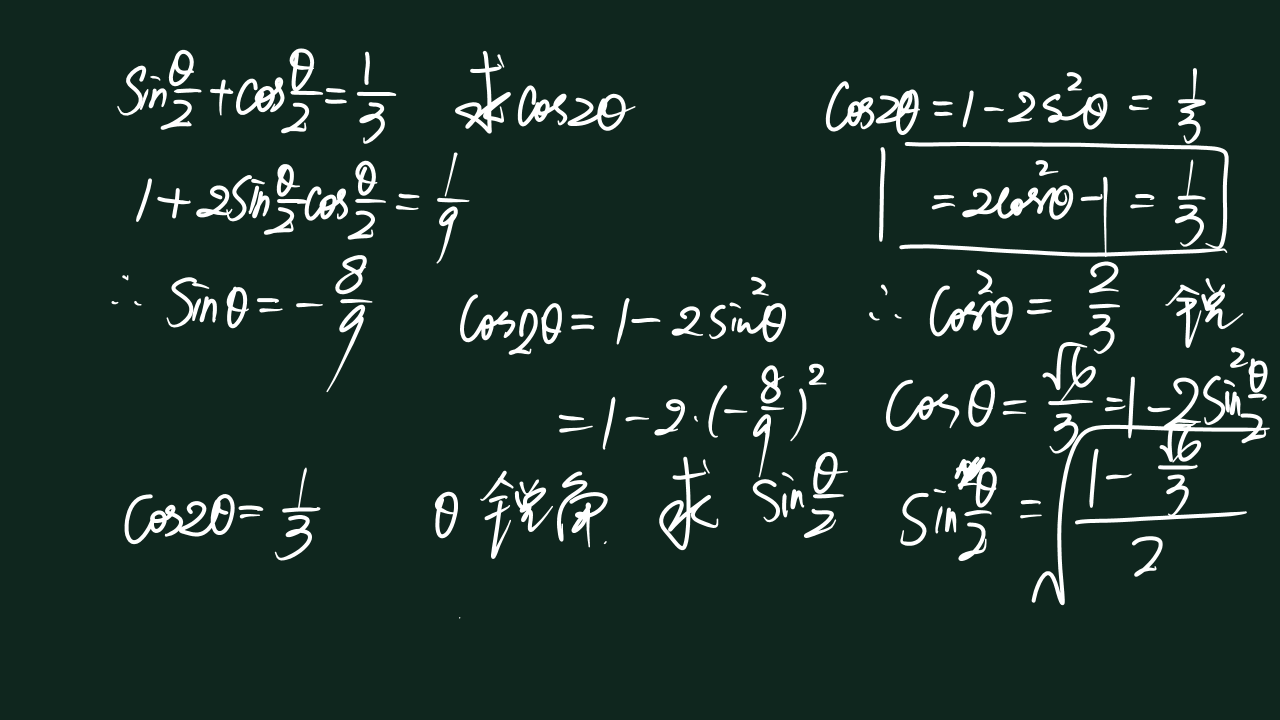 sin θ/2 + cos θ/2 = 1/3 求 cos2θ
1 + 2sin θ/2 cos θ/2 = 1/9
∴ sinθ = - 8/9
cos2θ = 1 - 2sin²θ
= 1 - 2·(- 8/9)²
cos2θ = 1/3 θ 锐角. 求 sin θ/2
cos2θ = 1 - 2s²θ = 1/3
= 2cos²θ - 1 = 1/3
∴ cos²θ = 2/3 锐
cosθ = √6/3 = 1 - 2sin² θ/2
sin θ/2 = √((1 - √6/3)/2)